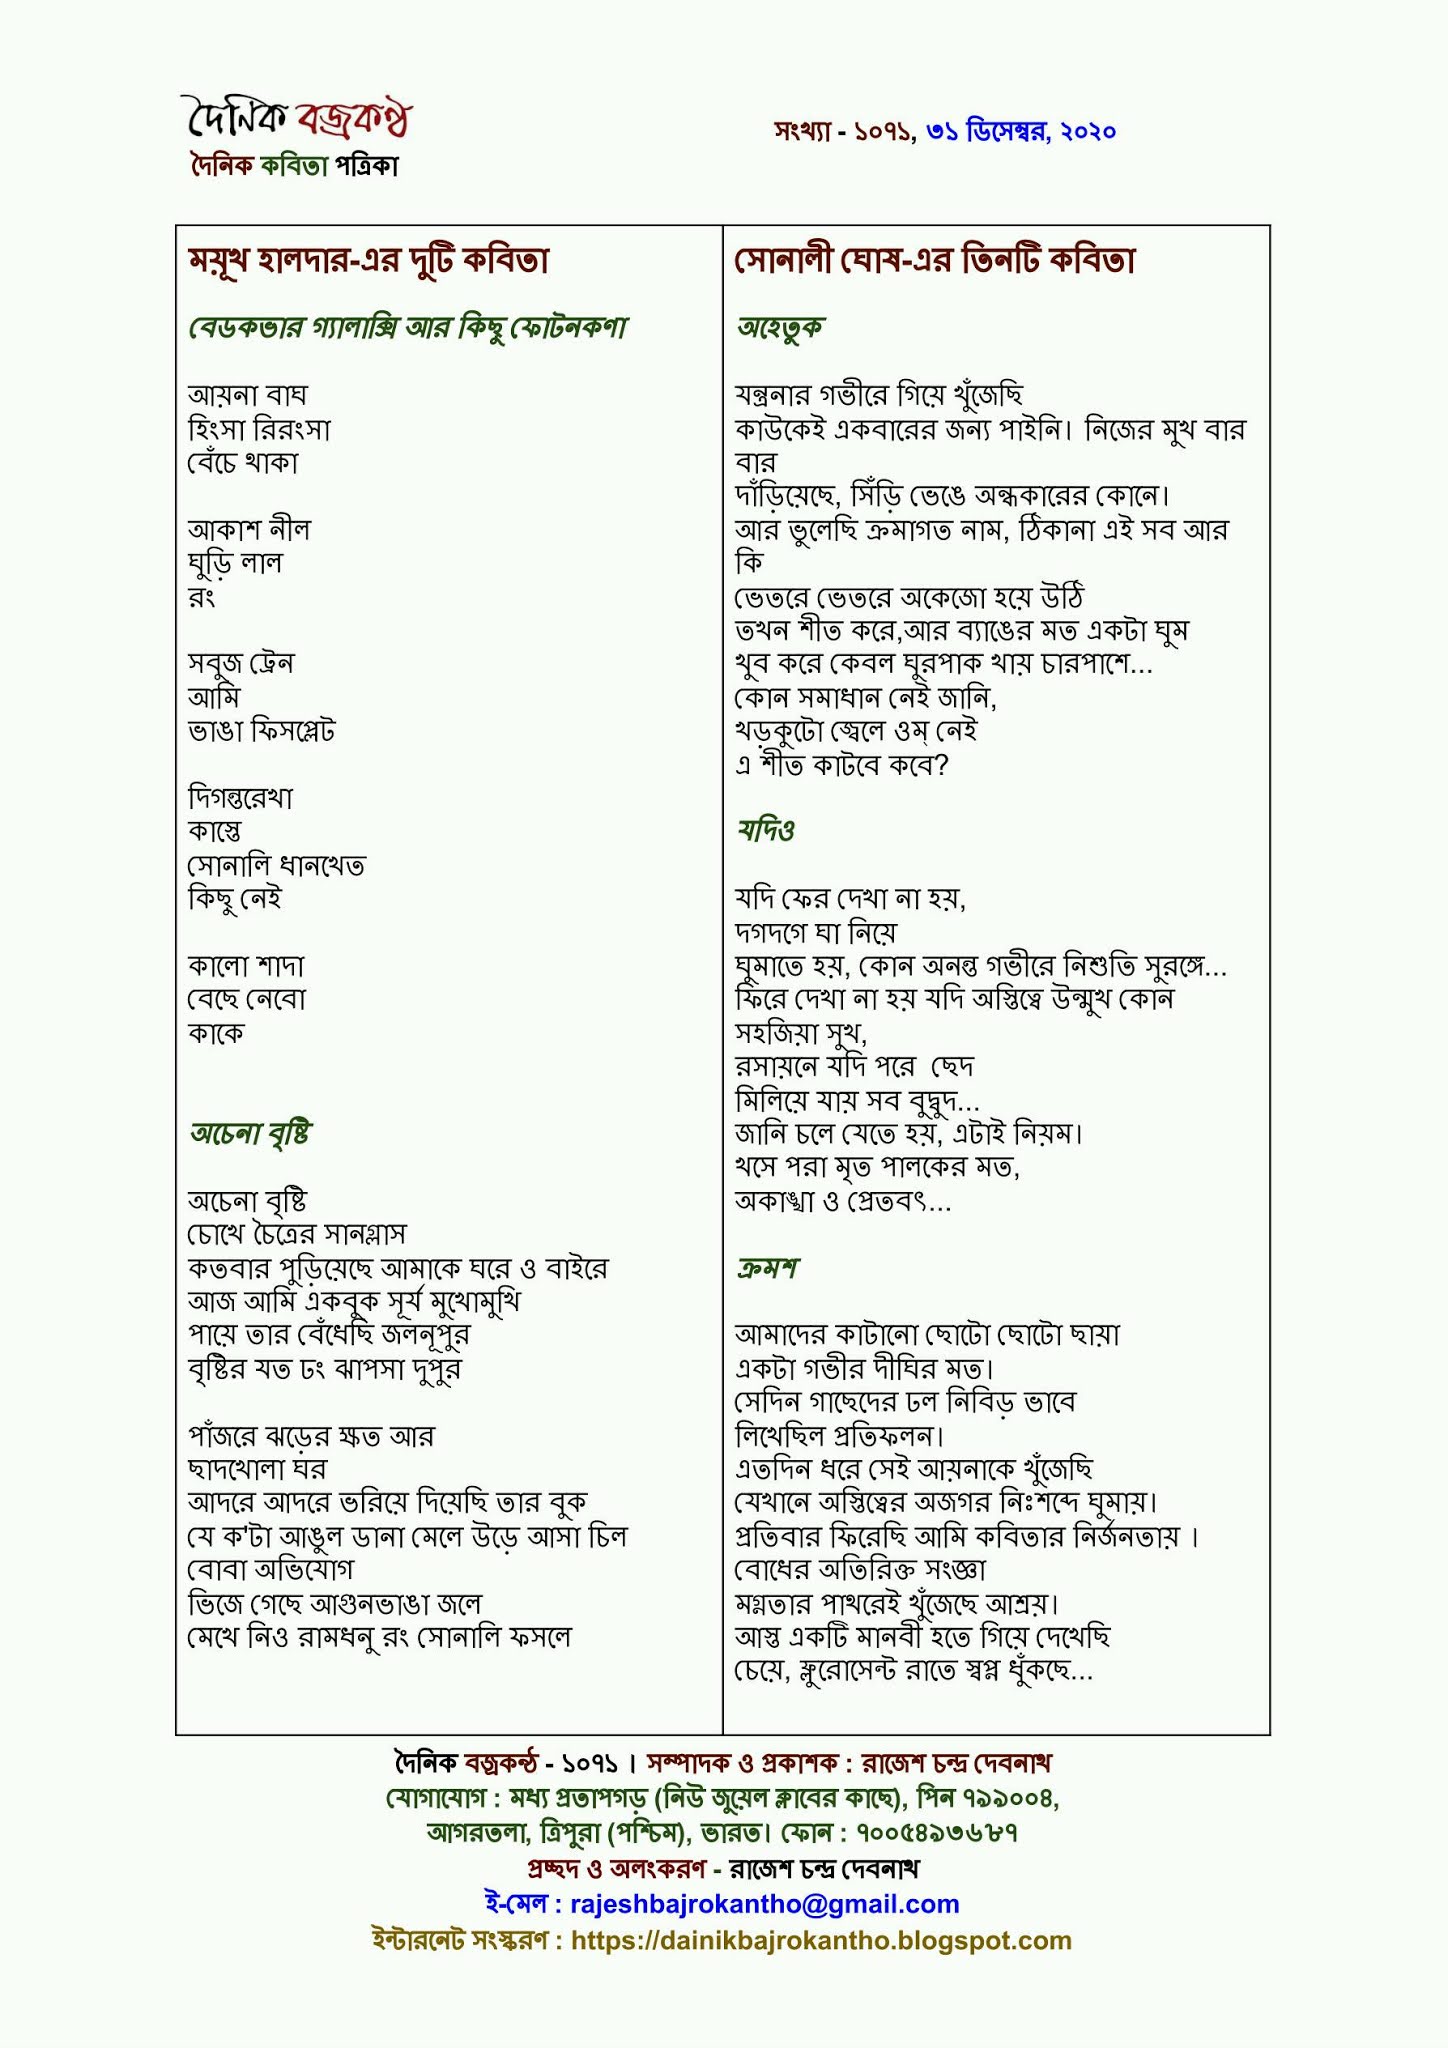 দৈনিক বজ্রকণ্ঠ
দৈনিক কবিতা পত্রিকা
সংখ্যা - ১০৭১, ৩১ ডিসেম্বর, ২০২০
ময়ূখ হালদার-এর দুটি কবিতা
বেডকভার গ্যালাক্সি আর কিছু ফোটনকণা
আয়না বাঘ
হিংসা রিরংসা
বেঁচে থাকা
আকাশ নীল
ঘুড়ি লাল
রং
সবুজ ট্রেন
আমি
ভাঙা ফিসপ্লেট
দিগন্তরেখা
কাস্তে
সোনালি ধানখেত
কিছু নেই
কালো শাদা
বেছে নেবো
কাকে
অচেনা বৃষ্টি
অচেনা বৃষ্টি
চোখে চৈত্রের সানগ্লাস
কতবার পুড়িয়েছে আমাকে ঘরে ও বাইরে
আজ আমি একবুক সূর্য মুখোমুখি
পায়ে তার বেঁধেছি জলনূপুর
বৃষ্টির যত ঢং ঝাপসা দুপুর
পাঁজরে ঝড়ের ক্ষত আর
ছাদখোলা ঘর
আদরে আদরে ভরিয়ে দিয়েছি তার বুক
যে ক'টা আঙুল ডানা মেলে উড়ে আসা চিল
বোবা অভিযোগ
ভিজে গেছে আগুনভাঙা জলে
মেখে নিও রামধনু রং সোনালি ফসলে
সোনালী ঘোষ-এর তিনটি কবিতা
অহেতুক
যন্ত্রনার গভীরে গিয়ে খুঁজেছি
কাউকেই একবারের জন্য পাইনি। নিজের মুখ বার
বার
দাঁড়িয়েছে, সিঁড়ি ভেঙে অন্ধকারের কোনে।
আর ভুলেছি ক্রমাগত নাম, ঠিকানা এই সব আর
কি
ভেতরে ভেতরে অকেজো হয়ে উঠি
তখন শীত করে,আর ব্যাঙের মত একটা ঘুম
খুব করে কেবল ঘুরপাক খায় চারপাশে...
কোন সমাধান নেই জানি,
খড়কুটো জ্বেলে ওম্ নেই
এ শীত কাটবে কবে?
যদিও
যদি ফের দেখা না হয়,
দগদগে ঘা নিয়ে
ঘুমাতে হয়, কোন অনন্ত গভীরে নিশুতি সুরঙ্গে...
ফিরে দেখা না হয় যদি অস্তিত্বে উন্মুখ কোন
সহজিয়া সুখ,
রসায়নে যদি পরে  ছেদ
মিলিয়ে যায় সব বুদ্বুদ...
জানি চলে যেতে হয়, এটাই নিয়ম।
খসে পরা মৃত পালকের মত,
অকাঙ্খা ও প্রেতবৎ...
ক্রমশ
আমাদের কাটানো ছোটো ছোটো ছায়া
একটা গভীর দীঘির মত।
সেদিন গাছেদের ঢল নিবিড় ভাবে
লিখেছিল প্রতিফলন।
এতদিন ধরে সেই আয়নাকে খুঁজেছি
যেখানে অস্তিত্বের অজগর নিঃশব্দে ঘুমায়।
প্রতিবার ফিরেছি আমি কবিতার নির্জনতায় ।
বোধের অতিরিক্ত সংজ্ঞা
মগ্নতার পাথরেই খুঁজেছে আশ্রয়।
আস্ত একটি মানবী হতে গিয়ে দেখেছি
চেয়ে, ফ্লুরোসেন্ট রাতে স্বপ্ন ধুঁকছে...
দৈনিক বজ্রকন্ঠ - ১০৭১ । সম্পাদক ও প্রকাশক : রাজেশ চন্দ্র দেবনাথ
যোগাযোগ : মধ্য প্রতাপগড় (নিউ জুয়েল ক্লাবের কাছে), পিন ৭৯৯০০৪,
আগরতলা, ত্রিপুরা (পশ্চিম), ভারত। ফোন : ৭০০৫৪৯৩৬৮৭
প্রচ্ছদ ও অলংকরণ - রাজেশ চন্দ্র দেবনাথ
ই-মেল : rajeshbajrokantho@gmail.com
ইন্টারনেট সংস্করণ : https://dainikbajrokantho.blogspot.com